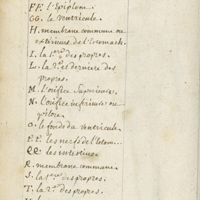 FF. l'Epiplom.
GG. le ventricule.
H. membrane commune ou
extérieure de l'estomach.
I. la 1.re des propres.
L. la 2.e et derniere des
propres.
M. l'orifice superieur.
N. l'orifice inferieur ou
pilore.
O. le fonds du ventricule.
PP. les nerfs de l'estom...
QQ. les intestins.
R. membrane commune.
S. la 1.re des propres.
T. la 2.e des propres.